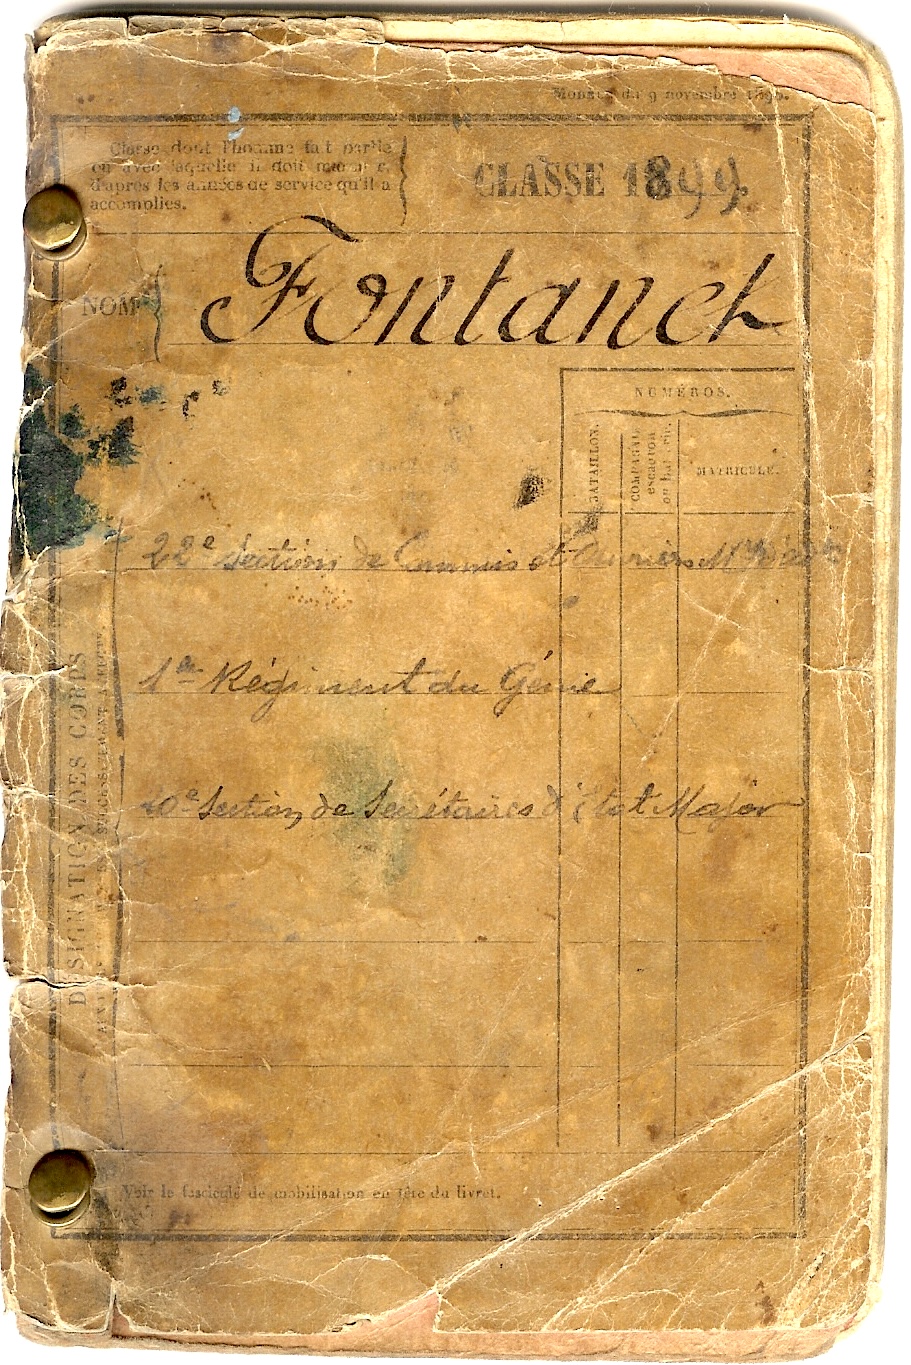 Modèle du 9 novembre 1896.
Classe dont l'homme fait partie
ou avec laquelle il doit marcher,
d'après les années de service qu'il a
accomplies.
CLASSE 1899
NOM
Fontanet
NUMÉROS.
BATAILLON.
COMPAGNIE,
escadron
ou batterie.
MATRICULE.
DÉSIGNATION DES CORPS
22e Section de Commis et Ouvriers
1er Régiment du Génie
20e Section de Secrétaires d'État Major
Voir le fascicule de mobilisation en tête du livret.